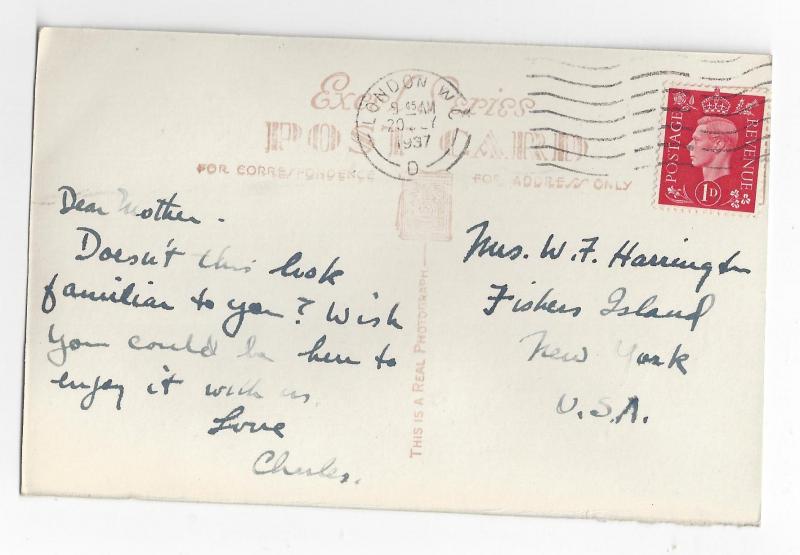 Excel Series
POST CARD
FOR CORRESPONDENCE
FOR ADDRESS ONLY
LONDON W.C.
9 45 AM
1937
D
POSTAGE
REVENUE
1D
Dear Mother -
Doesn't this look
familiar to you? Wish
you could be here to
enjoy it with us.
Love
Charles.
THIS IS A REAL PHOTOGRAPH
Mrs. W. F. Harrington
Fishers Island
New York
U.S.A.